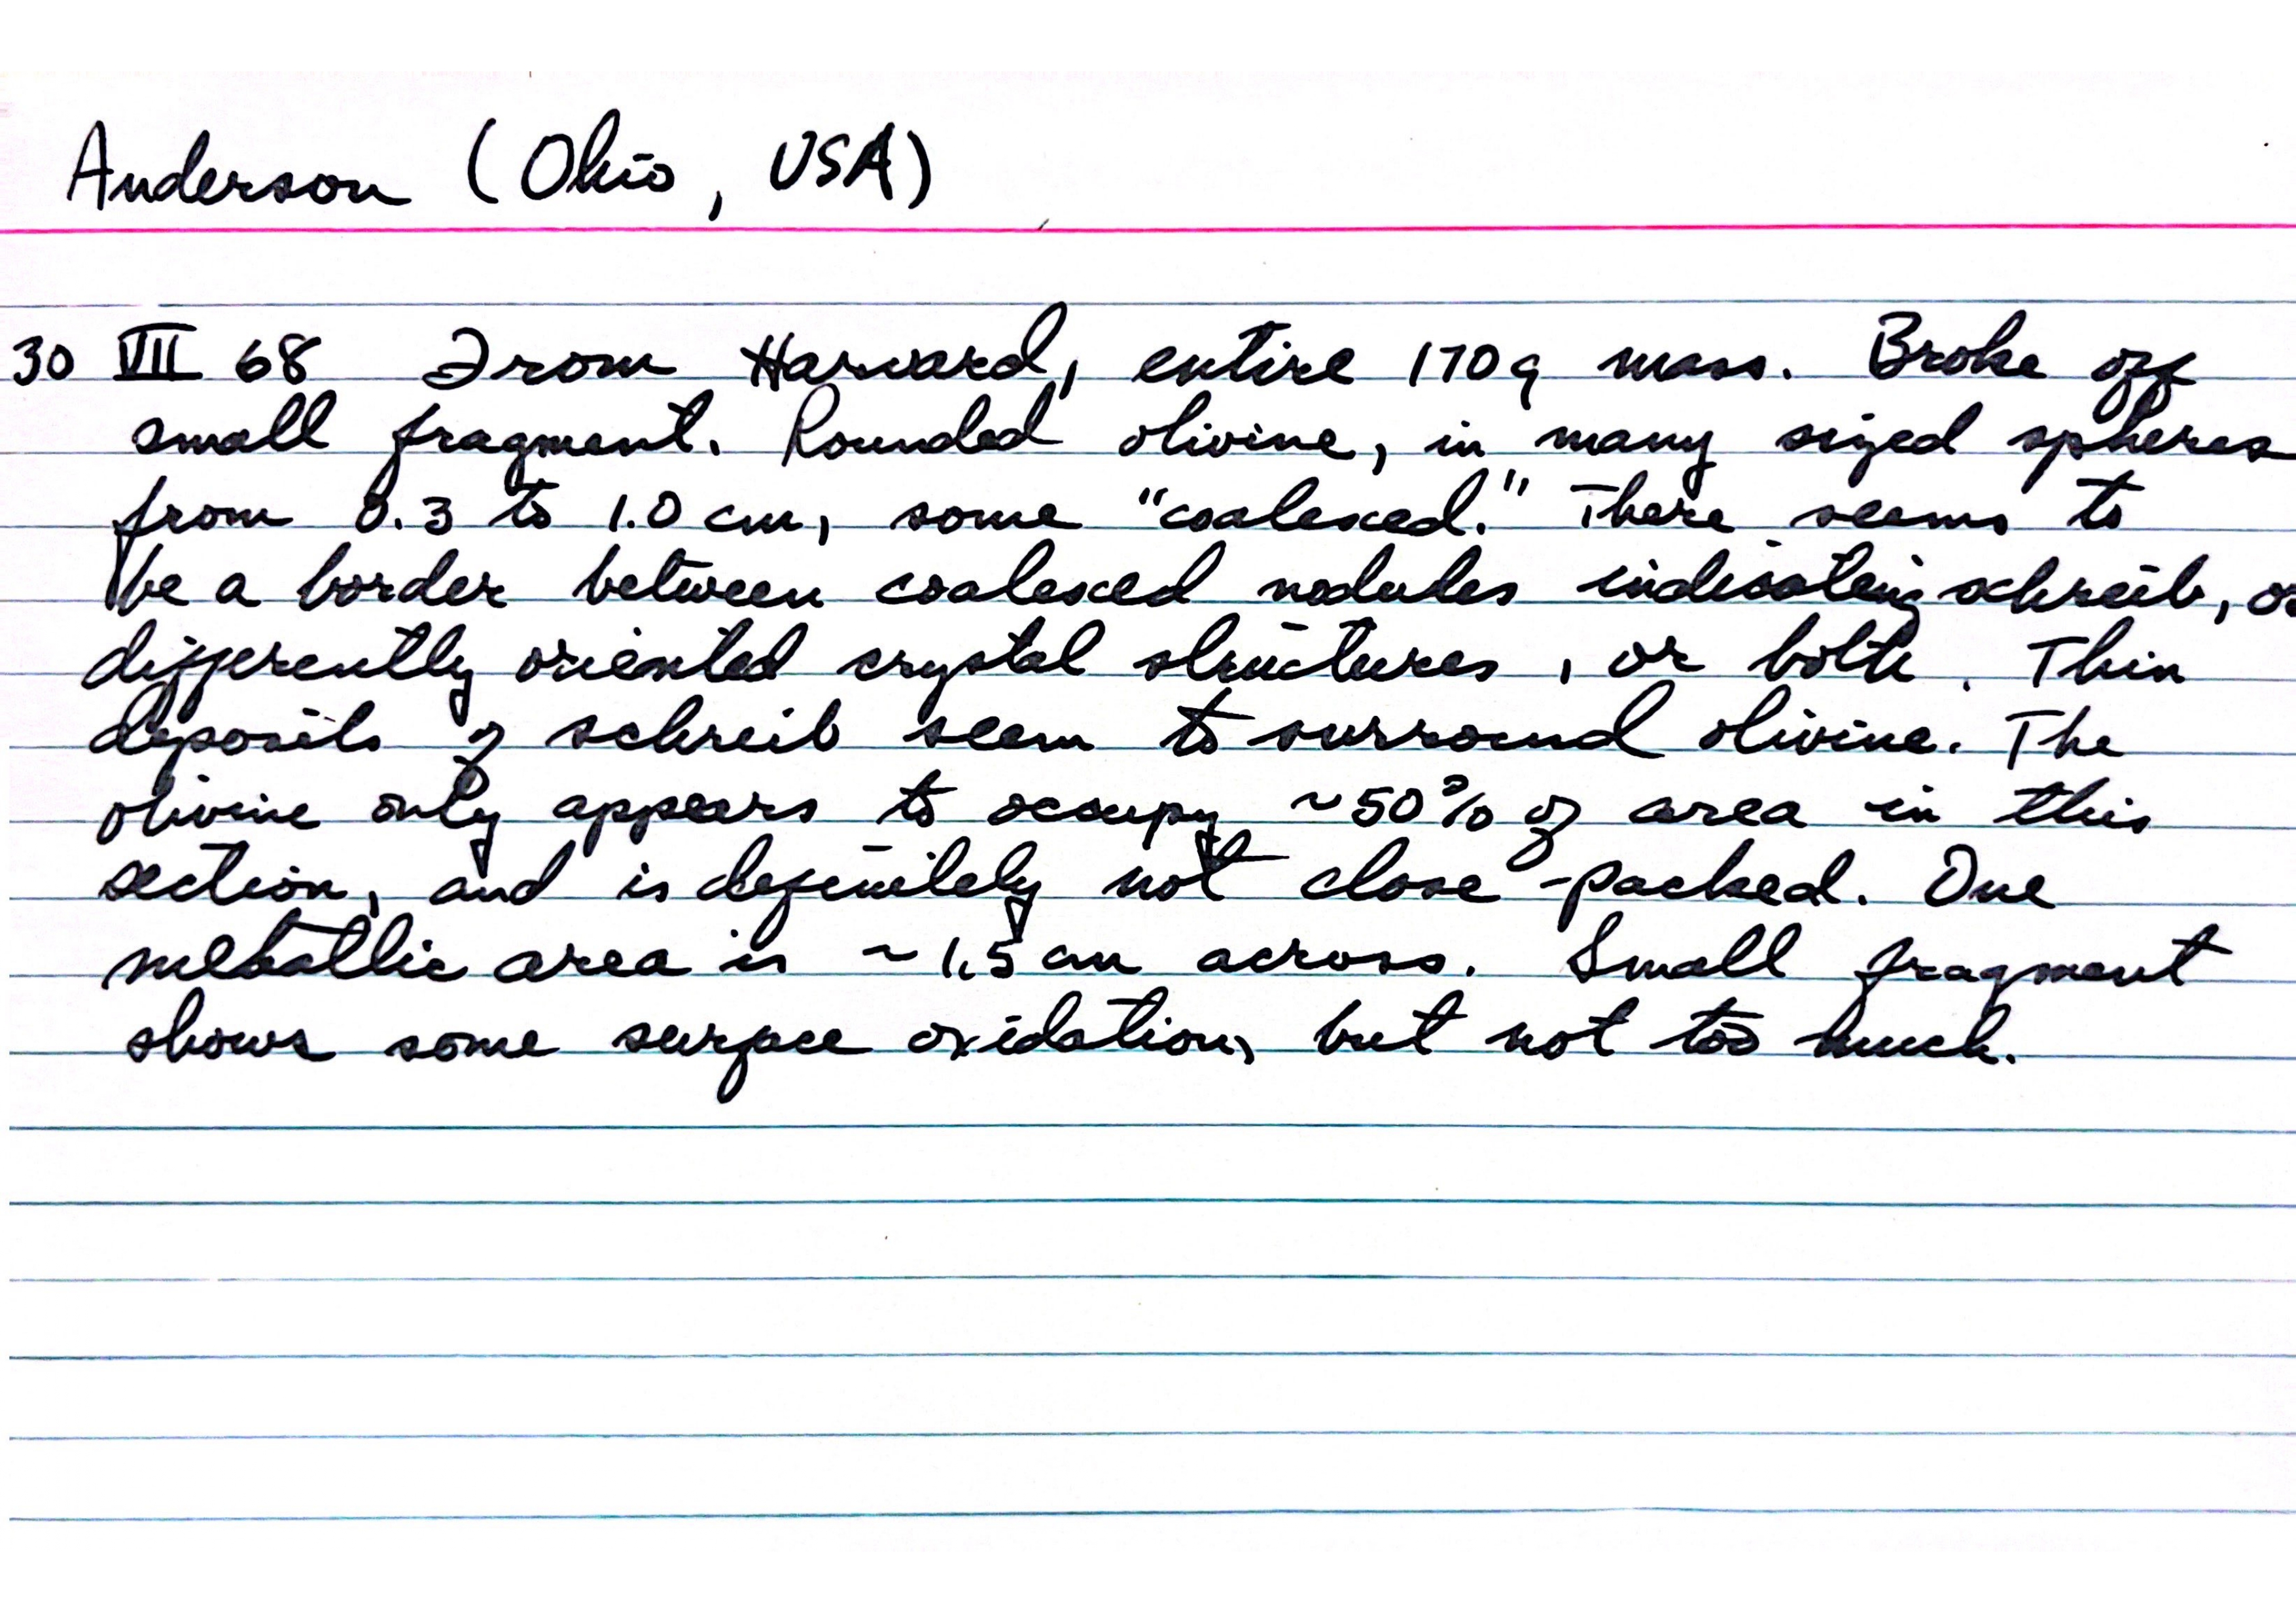 Anderson (Ohio, USA)
30 VII 68 From Harvard, entire 170g mass. Broke off
small fragment. Rounded olivine, in many sized spheres
from 0.3 to 1.0 cm, some "coalesced." There seems to
be a border between coalesced nodules indicating schreib, or
differently oriented crystal structures, or both. Thin
deposits of schreib seem to surround olivine. The
olivine only appears to occupy ~50% of area in this
section, and is definitely not close-packed. One
metallic area is ~1.5 cm across. Small fragment
shows some surface oxidation, but not too much.